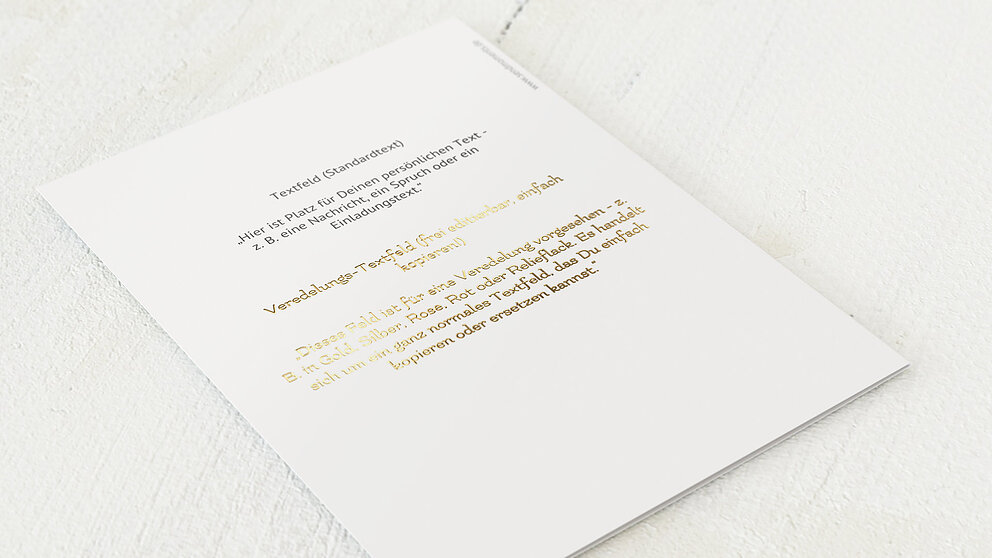 Textfeld (Standardtext)
„Hier ist Platz für Deinen persönlichen Text -
z. B. eine Nachricht, ein Spruch oder ein
Einladungstext.“
Veredelungs-Textfeld (frei editierbar, einfach
kopieren!)
„Dieses Feld ist für eine Veredelung vorgesehen - z.
B. in Gold, Silber, Rosé, Rot oder Relieflack. Es handelt
sich um ein ganz normales Textfeld, das Du einfach
kopieren oder ersetzen kannst.“